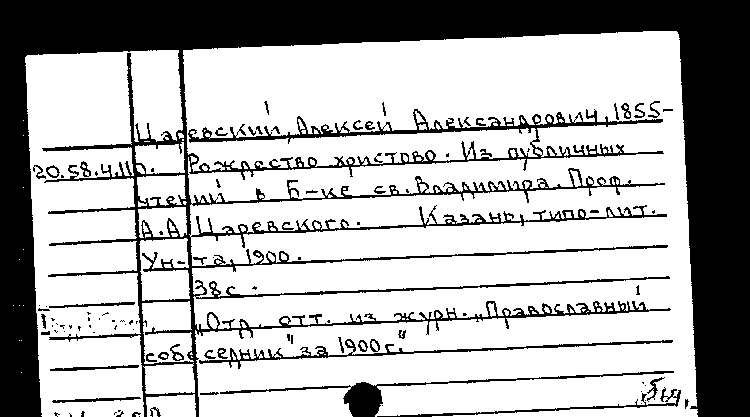 Царевский, Алексей Александрович, 1855-
20.58.4.110. Рождество христово. Из публичных
чтений в Б-ке св. Владимира. Проф.
А.А. Царевского. Казань, типо-лит.
Ун-та, 1900.
38с.
"Отд. отт. из журн. "Православный
собеседник" за 1900г."